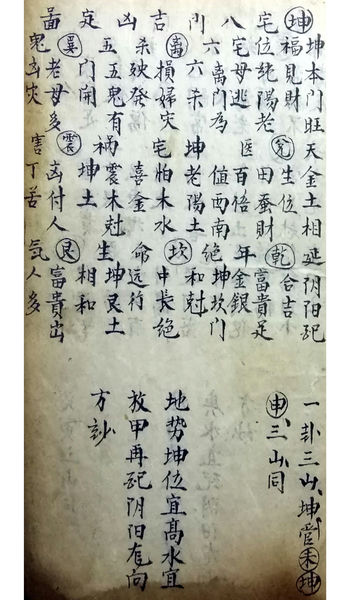 坤宅八門吉凶定畐
坤本門旺天金土相延阴阳配
福見財兌生位乾合吉
位純陽老田蚕財富貴足
宅母逃医百倍土年金銀
六離門為值西南絕坤坎門
六杀坤老陽土和尅
離損婦灾宅怕木水坎中長絕
杀殃發喜金六命远行
五五鬼有禍震木尅生坤艮土
門闹坤土相和
巽老母多震凶付人艮富貴出
鬼凶灾害丁苦气人多
一卦三山坤管未坤
申三山同
地势坤位宜高水宜
放甲再配阴阳向
方訬